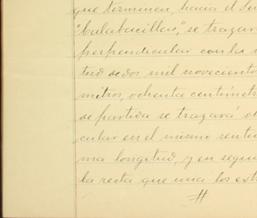 que terminen, hacia el Sur
"Calabacillas," se trazará
perpendicular con la
tud de dos mil novecientos
metros, ochenta centímetros
de partida se trazará
cular en el mismo sentido
ma longitud, y en segui
la recta que una los ext